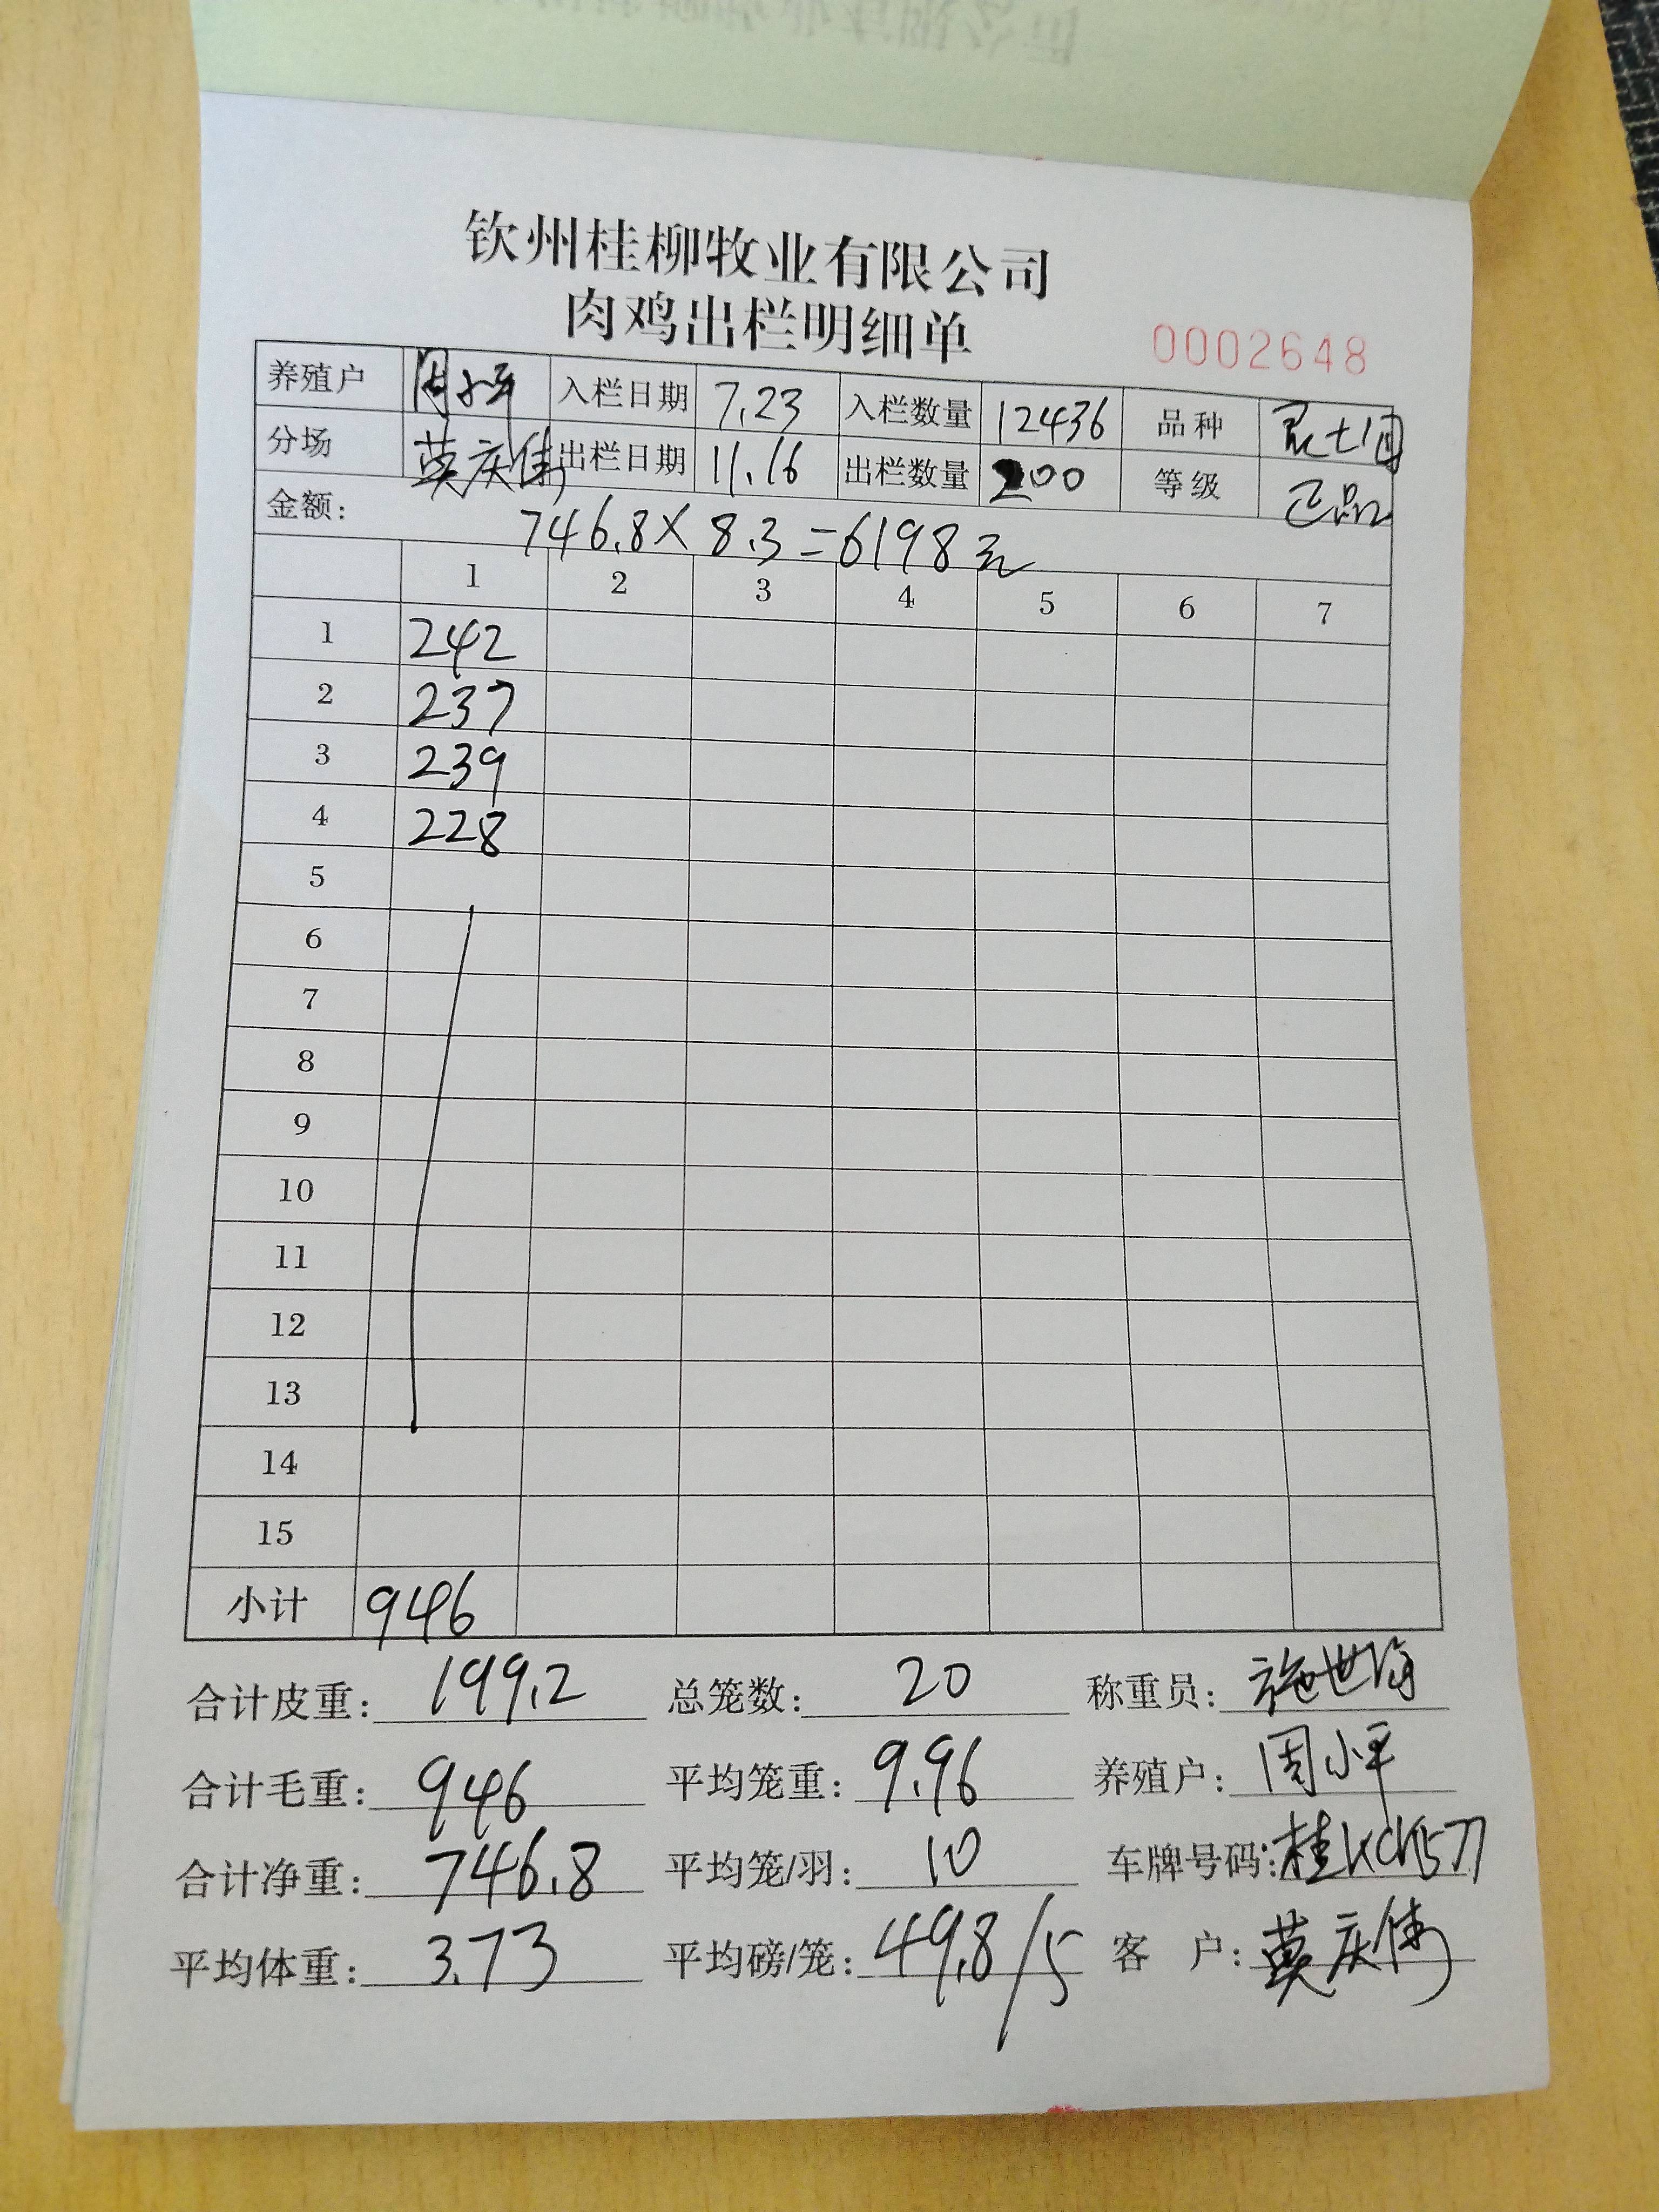 钦州桂柳牧业有限公司
肉鸡出栏明细单
0002648
养殖户 周小平 入栏日期 7.23 入栏数量 12436 品种
分场 莫庆伟 出栏日期 11.16 出栏数量 200 等级 正品
金额: 746.8×8.3=6198元
1 2 3 4 5 6 7
1 242
2 237
3 239
4 228
5
6
7
8
9
10
11
12
13
14
15
小计 946
合计皮重: 199.2 总笼数: 20 称重员: 施世
合计毛重: 946 平均笼重: 9.96 养殖户: 周小平
合计净重: 746.8 平均笼/羽: 10 车牌号码: 桂
平均体重: 3.73 平均磅/笼: 49.8/5 客 户: 莫庆伟